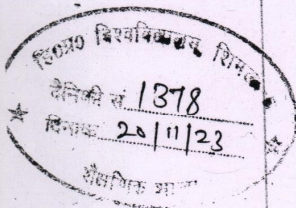 हि०प्र० विश्वविद्यालय, शिमला
दैनिकी सं. 1378
दिनांक 20/11/23
शैक्षणिक शाखा